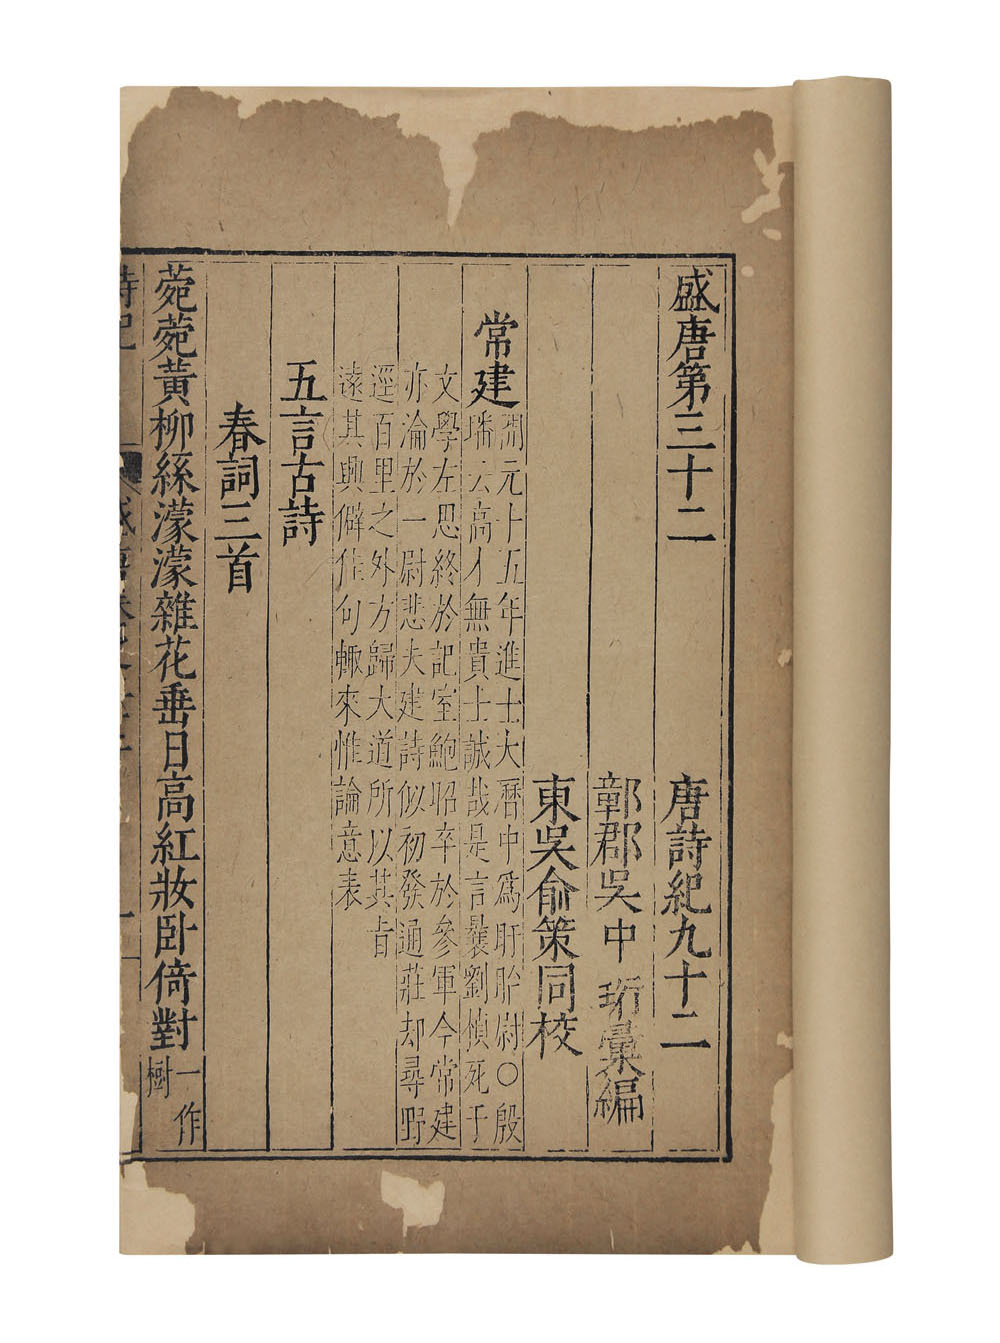 盛唐第三十二 唐詩紀九十二
鄣郡吳中珩彙編
東吳俞策同校
常建
開元十五年進士大曆中爲盱眙尉○殷
璠云高才無貴士誠哉是言曩劉楨死于
文學左思終於記室鮑昭卒於參軍今常建
亦淪於一尉悲夫建詩似初發通莊却尋野
逕百里之外方歸大道所以其旨
遠其興僻佳句輙來惟論意表
五言古詩
春詞三首
菀菀黃柳絲濛濛雜花垂日高紅妝卧倚對
一作
樹
詩紀